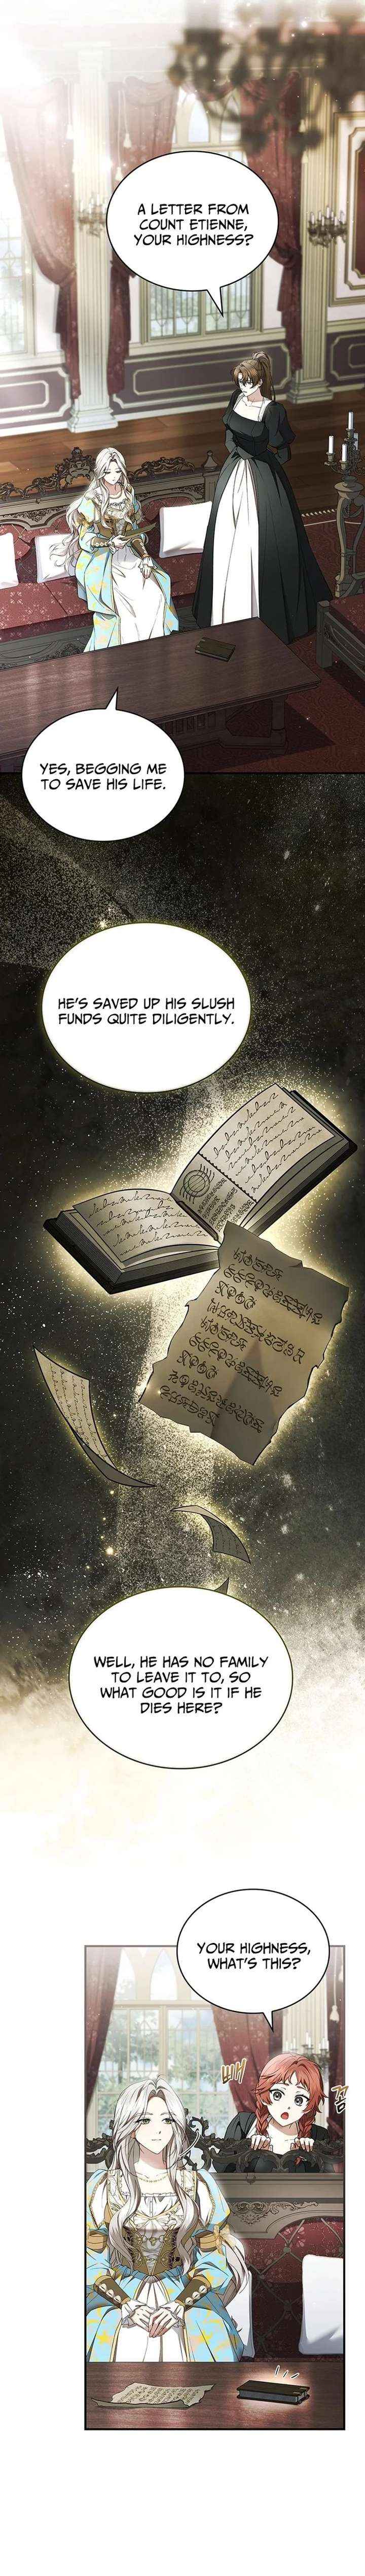 A LETTER FROM
COUNT ETIENNE,
YOUR HIGHNESS?
YES, BEGGING ME
TO SAVE HIS LIFE.
HE'S SAVED UP HIS SLUSH
FUNDS QUITE DILIGENTLY.
WELL, HE HAS NO FAMILY
TO LEAVE IT TO, SO
WHAT GOOD IS IT IF HE
DIES HERE?
YOUR HIGHNESS,
WHAT'S THIS?
빼
꼼